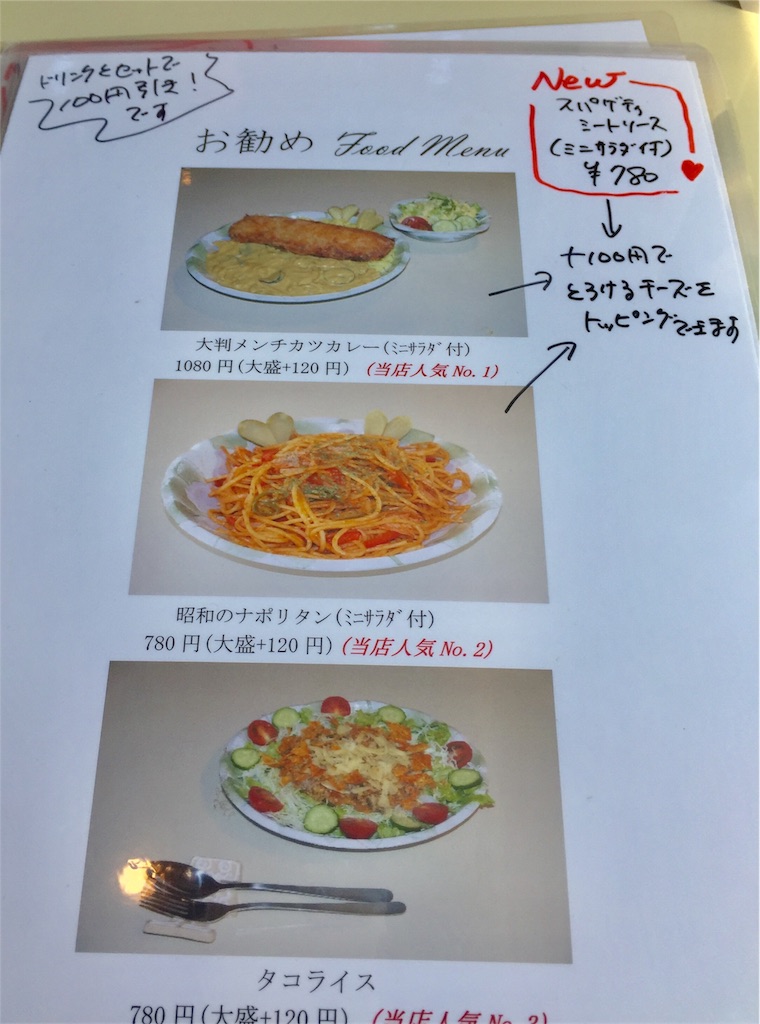 ドリンクとセットで
100円引き!
です
New
スパゲティ
ミートソース
(ミニサラダ付)
¥780
お勧め Food Menu
+100円で
とろけるチーズを
トッピングできます
大判メンチカツカレー(ﾐﾆｻﾗﾀﾞ付)
1080円(大盛+120円) (当店人気No.1)
昭和のナポリタン(ﾐﾆｻﾗﾀﾞ付)
780円(大盛+120円) (当店人気No.2)
タコライス
780円(大盛+120円) (当店人気No.3)